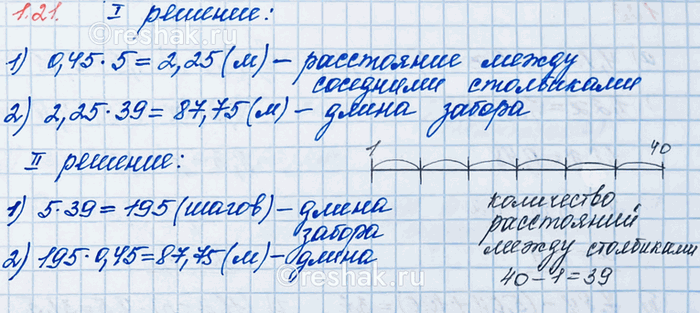 1.21. I решение:
©reshak.ru
1) 0,45·5=2,25(м)–расстояние между
соседними столбиками
2) 2,25·39=87,75(м)–длина забора
II решение:
1 40
1) 5·39=195(шагов)–длина
забора
2) 195·0,45=87,75(м)–длина
количество
расстояний
между столбиками
40–1=39
©reshak.ru